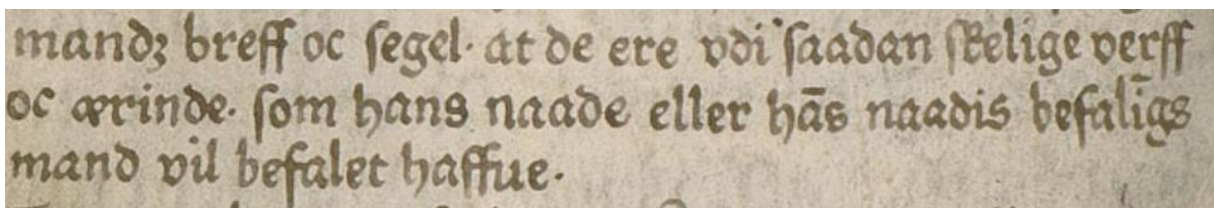 mandꝫ breff oc ſegel· at de ere vdi ſaadan ſkelige verff
oc ærinde· ſom hans naade eller hās naadis befalīgs
mand vil befalet haffue·